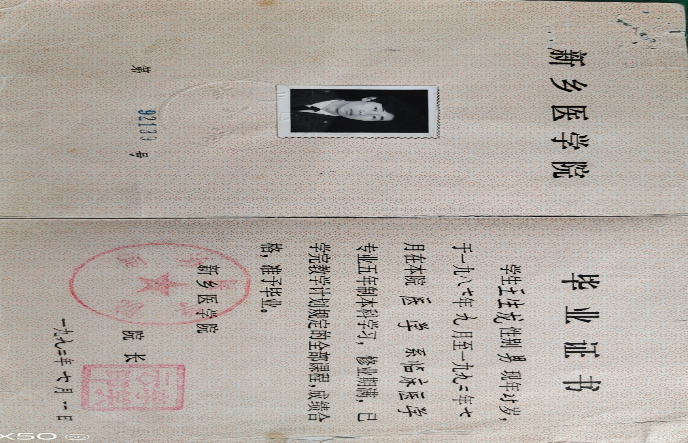 新乡医学院
第 92139 号
毕业证书
学生王生龙 性别 男 现年24岁,
于一九八七年 九 月至一九九二年 七
月在本院 医 学 系临床医学
专业五年制本科学习,修业期满,已
学完教学计划规定的全部课程,成绩合
格,准予毕业。
新乡医学院
院 长
一九九二年 七 月 一 日
X50